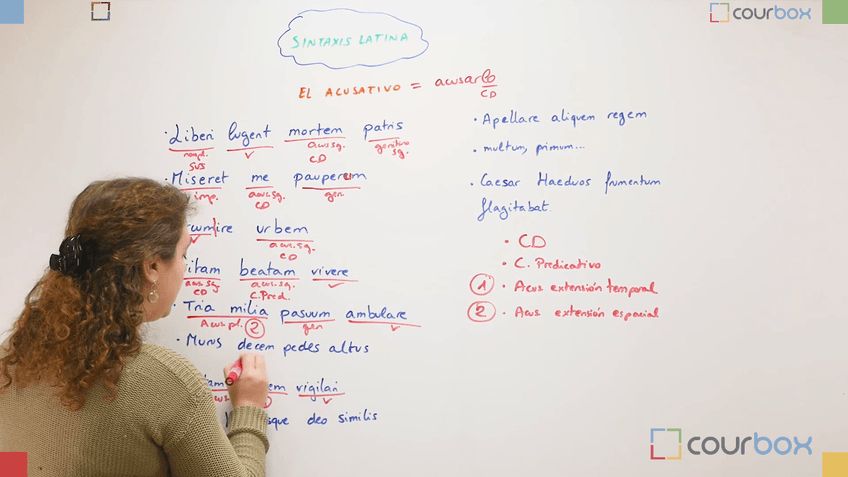 courbox
SINTAXIS LATINA
EL ACUSATIVO = acusarlo
CD
· Liberi lugent mortem patris
nom.pl. acus.sg. genitivo
SUJ CD sg.
· Miseret me pauperum
imp. acus.sg. gen.
CD
urbem
acus.sg.
CD
beatam vivere
acus.sg. acus.sg.
CD C.Pred.
· Tria milia pasuum ambulare
Acus.pl. 2 gen
· Murus decem pedes altus
vigilari
deo similis
· Apellare aliquem regem
· multum, primum...
· Caesar Haeduos frumentum
flagitabat.
· CD
· C. Predicativo
1 · Acus extensión temporal
2 · Acus extensión espacial
courbox